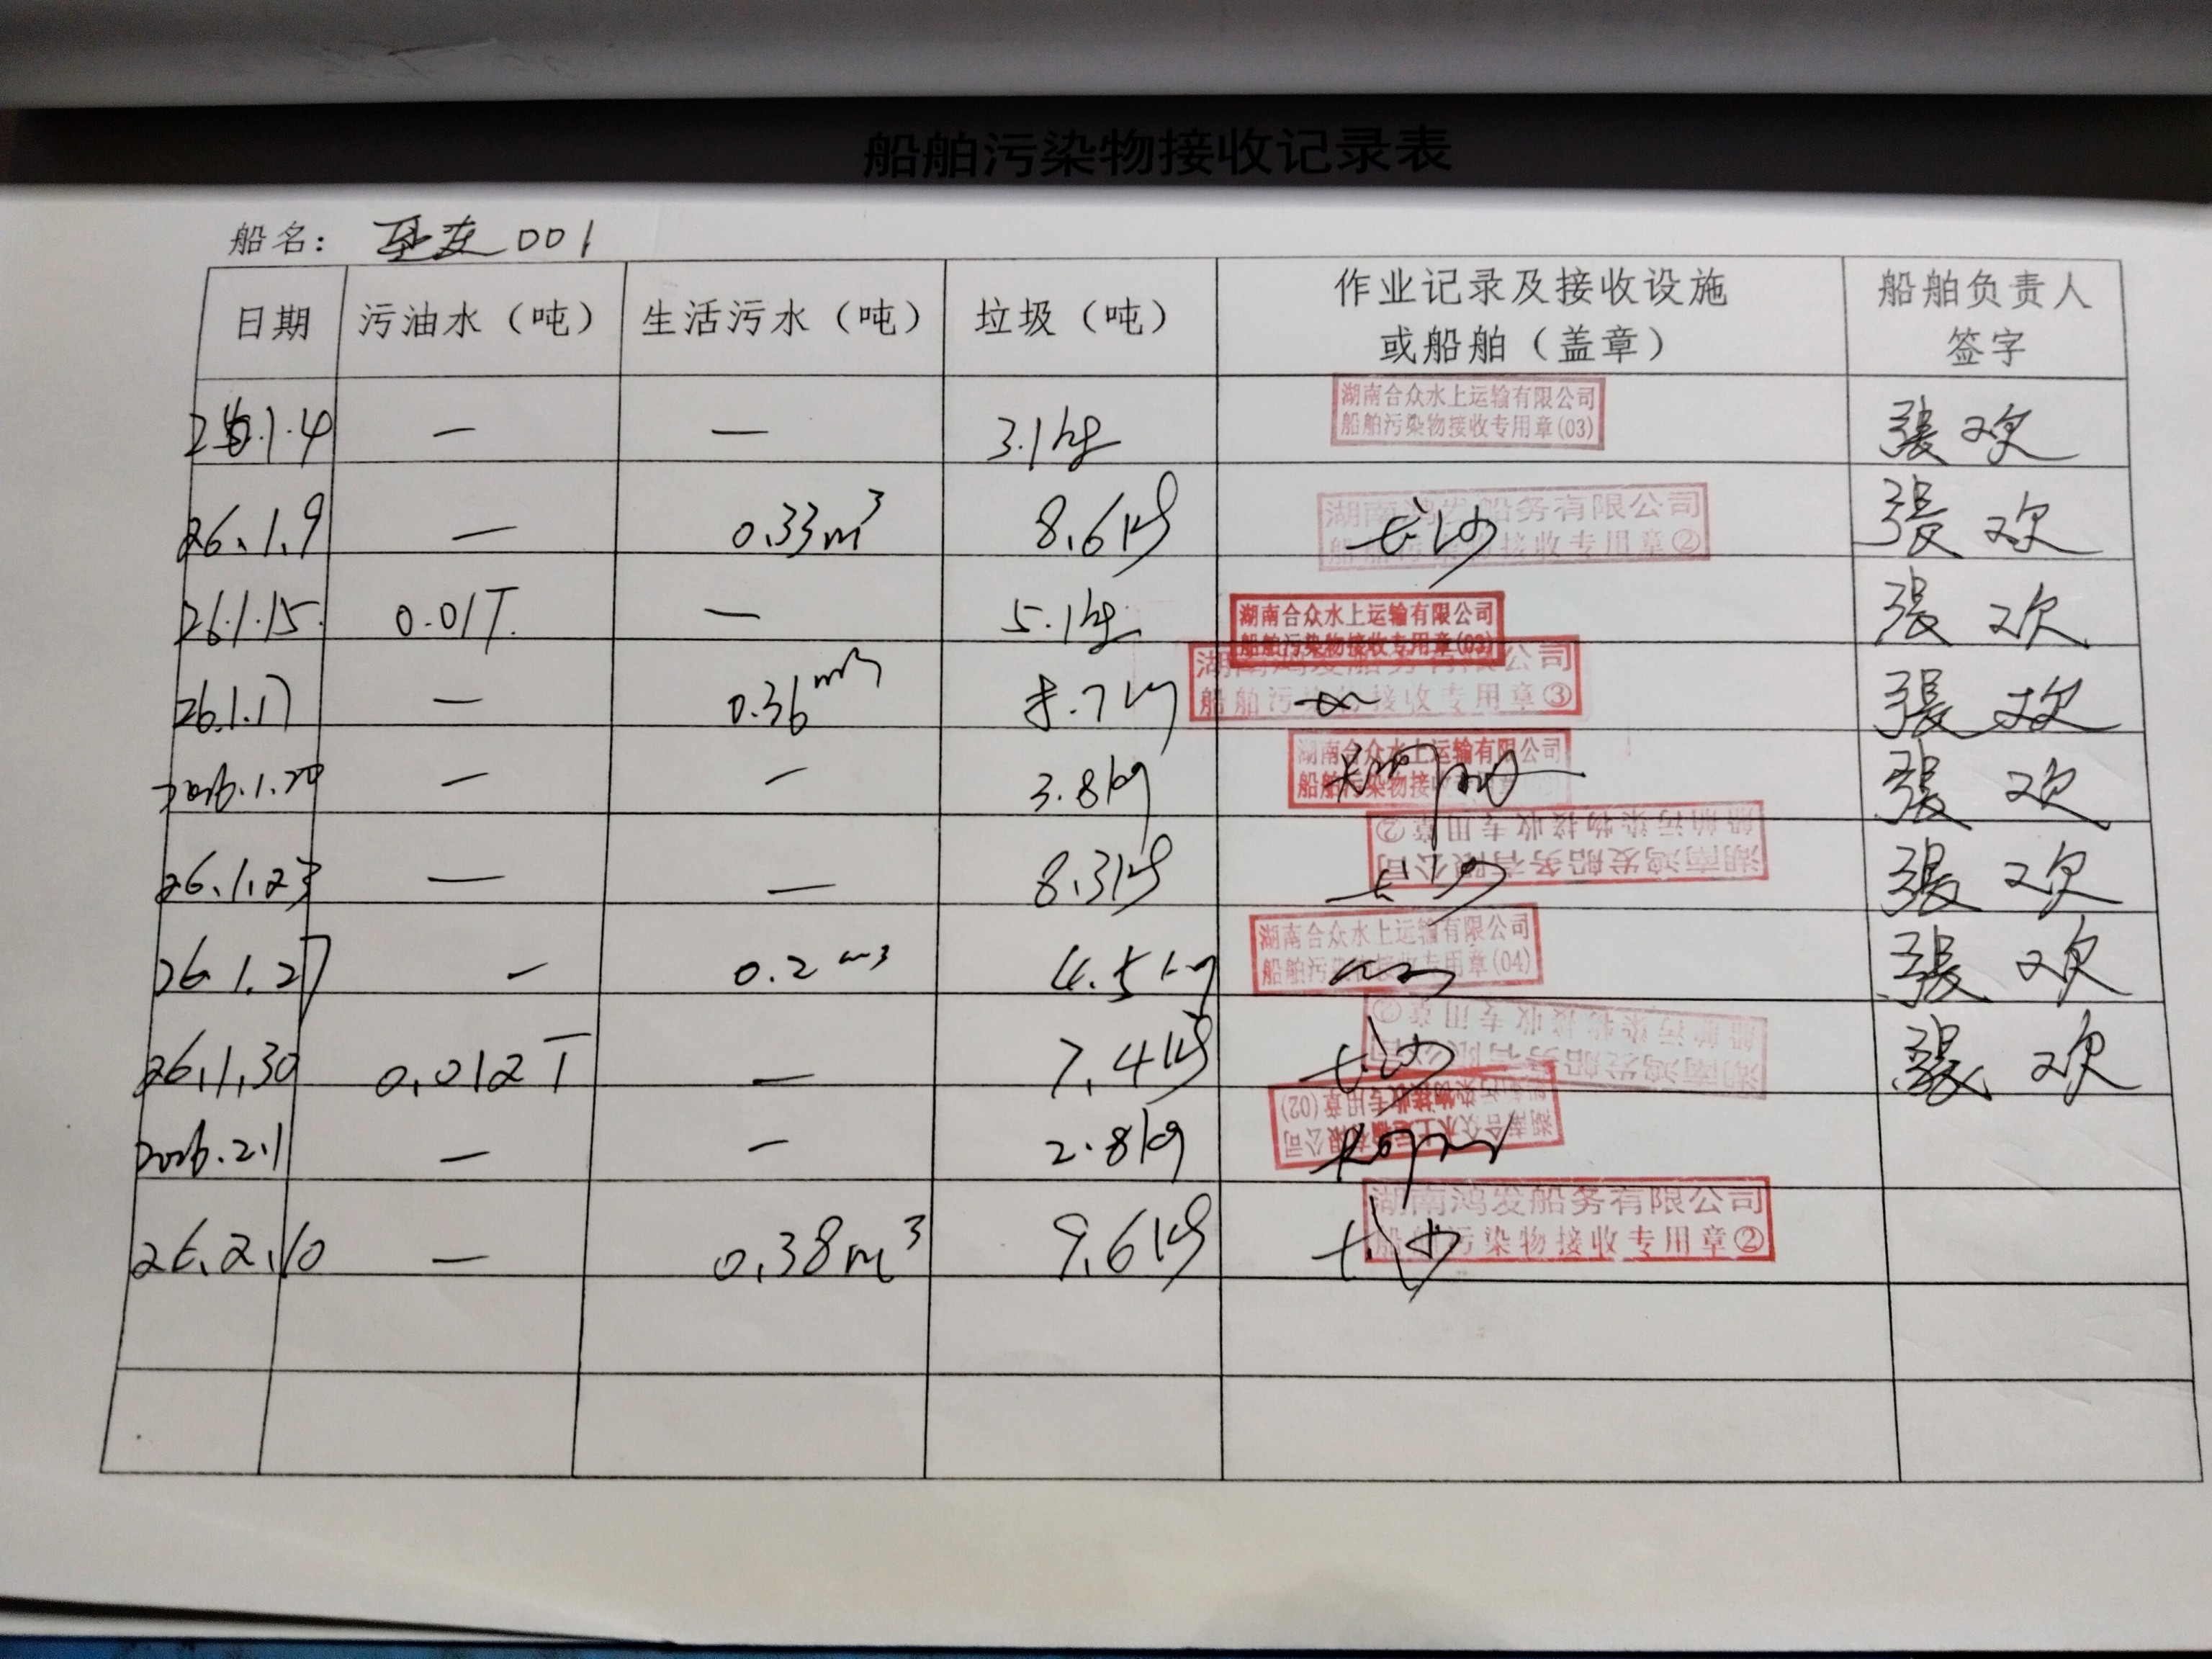 船舶污染物接收记录表
船名： 001
日期 污油水（吨） 生活污水（吨） 垃圾（吨） 作业记录及接收设施或船舶（盖章） 船舶负责人签字
26.1.4 — — 3.1kg 湖南合众水上运输有限公司 船舶污染物接收专用章(03) 張欢
26.1.9 — 0.33m³ 8.6kg 湖南鸿发船务有限公司 船舶污染物接收专用章② 长沙 張欢
26.1.15. 0.01T. — 5.1kg 湖南合众水上运输有限公司 船舶污染物接收专用章(03) 張欢
26.1.17 — 0.36m³ .7kg 湖南鸿发船务有限公司 船舶污染物接收专用章③ 張欢
2026.1.20 — — 3.8kg 湖南合众水上运输有限公司 船舶污染物接收 張欢
26.1.23 — — 8.3kg 湖南鸿发船务有限公司 船舶污染物接收专用章② 长沙 張欢
26.1.27 — 0.2m³ 4.5kg 湖南合众水上运输有限公司 船舶污染物接收专用章(04) 張欢
26.1.30 0.012T — 7.4kg 湖南鸿发船务有限公司 船舶污染物接收专用章② 长沙 張欢
2026.2.1 — — 2.8kg 湖南合众水上运输有限公司 船舶污染物接收专用章(02)
26.2.10 — 0.38m³ 9.6kg 湖南鸿发船务有限公司 船舶污染物接收专用章② 长沙